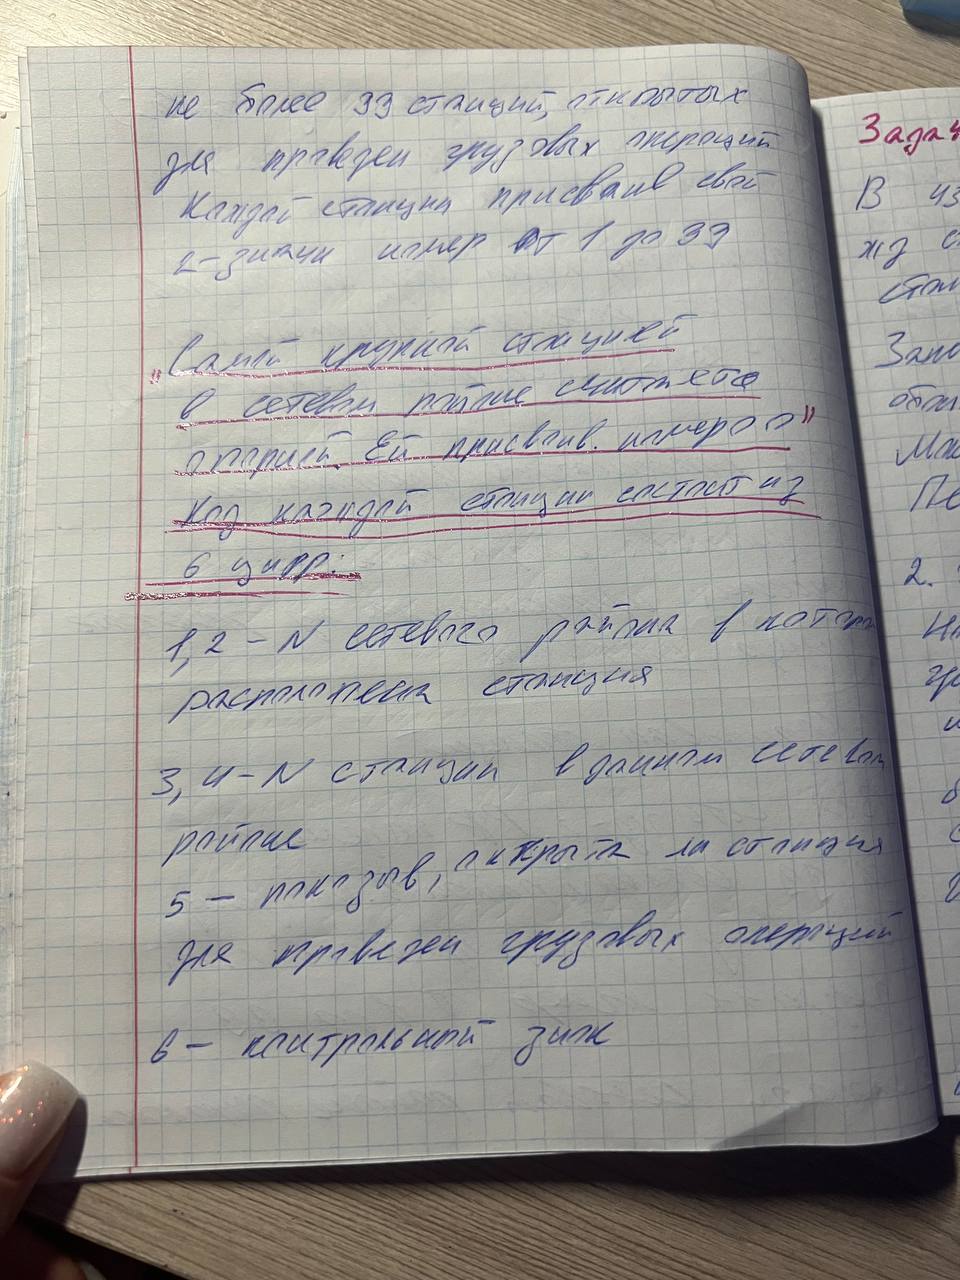 не более 99 станций, открытых
для проведен грузовых операций
Каждой станции присваив свой
2-значн номер от 1 до 99
„Самой крупной станцией
в сетевом районе считается
опорной. Ей присваив. номер 00"
Код каждой станции состоит из
6 цифр:
1,2 – N сетевого района в котором
расположена станция
3,4 – N станции в данном сетевом
районе
5 – показыв, открыта ли станция
для проведен грузовых операций
6 – контрольный знак
Зада
В
жд
стан
Запо
2.